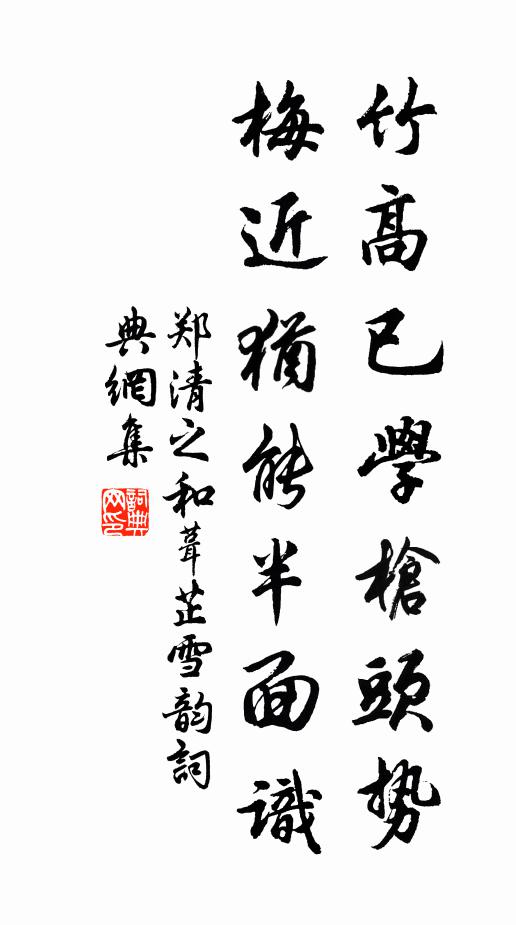 竹高已學槍頭勢
梅近猶能半面識
郑清之和葺芷雪韵詞
典網集
詞典网印